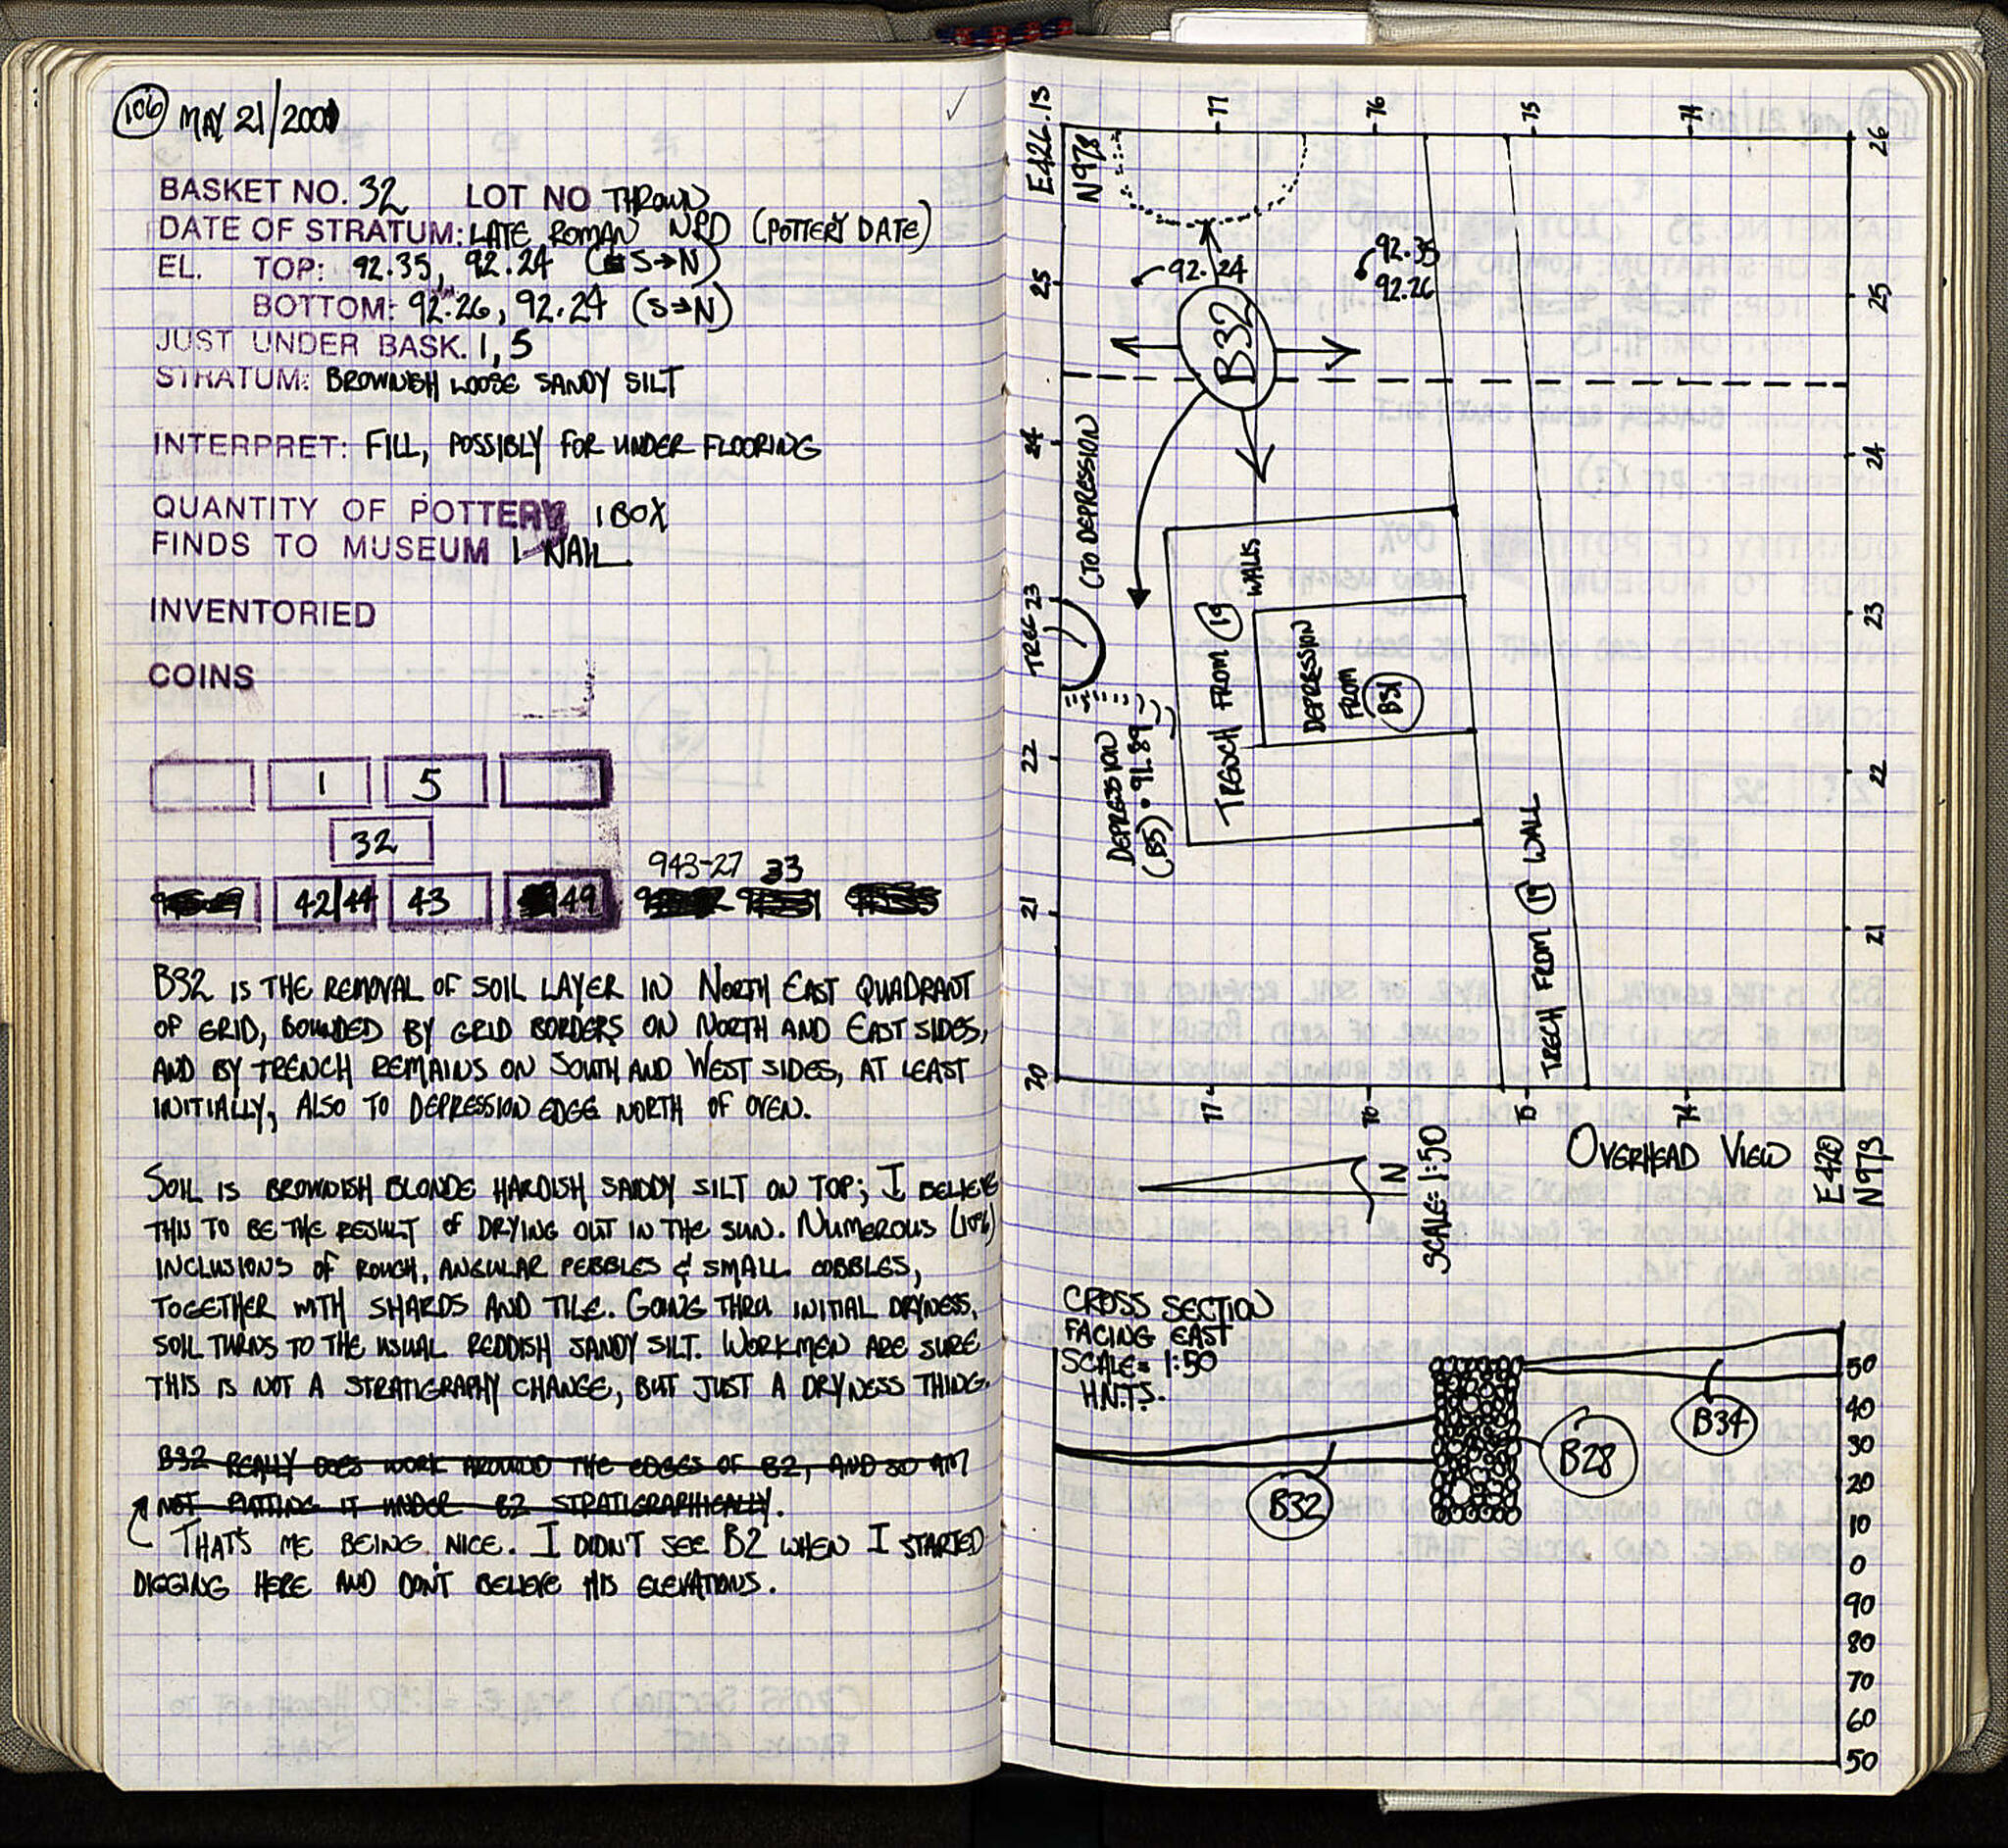 106 MAY 21/2001
BASKET NO. 32 LOT NO THROWN
DATE OF STRATUM: LATE ROMAN NPD (POTTERY DATE)
EL. TOP: 92.35, 92.24 (S→N)
BOTTOM: 92.26, 92.24 (S→N)
JUST UNDER BASK. 1, 5
STRATUM: BROWNISH LOOSE SANDY SILT
INTERPRET: FILL, POSSIBLY FOR UNDER FLOORING
QUANTITY OF POTTERY 1 BOX
FINDS TO MUSEUM 1 NAIL
INVENTORIED
COINS
1 5
32
943-27 33
42/44 43 49
B32 IS THE REMOVAL OF SOIL LAYER IN NORTH EAST QUADRANT
OF GRID, BOUNDED BY GRID BORDERS ON NORTH AND EAST SIDES,
AND BY TRENCH REMAINS ON SOUTH AND WEST SIDES, AT LEAST
INITIALLY, ALSO TO DEPRESSION EDGE NORTH OF OVEN.
SOIL IS BROWNISH BLONDE HARDISH SANDY SILT ON TOP; I BELIEVE
THIS TO BE THE RESULT OF DRYING OUT IN THE SUN. NUMEROUS (10%)
INCLUSIONS OF ROUGH, ANGULAR PEBBLES & SMALL COBBLES,
TOGETHER WITH SHARDS AND TILE. GOING THRU INITIAL DRYNESS,
SOIL TURNS TO THE USUAL REDDISH SANDY SILT. WORKMEN ARE SURE
THIS IS NOT A STRATIGRAPHY CHANGE, BUT JUST A DRYNESS THING.
B32 REALLY DOES WORK AROUND THE EDGES OF B2, AND SO AM
NOT PUTTING IT UNDER B2 STRATIGRAPHICALLY.
THAT'S ME BEING NICE. I DIDN'T SEE B2 WHEN I STARTED
DIGGING HERE AND DON'T BELIEVE HIS ELEVATIONS.
E426.13
N978
77 76 75 74
26
25
24
23
22
21
20
26
25
24
23
22
21
92.24
92.35
92.26
B32
(TO DEPRESSION
TREE
DEPRESSION
(B5) • 91.89
TRENCH FROM 19 WALLS
DEPRESSION
FROM
B31
TRECH FROM 19 WALL
77 76 75 74
N
SCALE= 1:50
OVERHEAD VIEW
E420
N973
CROSS SECTION
FACING EAST
SCALE= 1:50
H.N.T.S.
B32
B28
B34
50
40
30
20
10
0
90
80
70
60
50